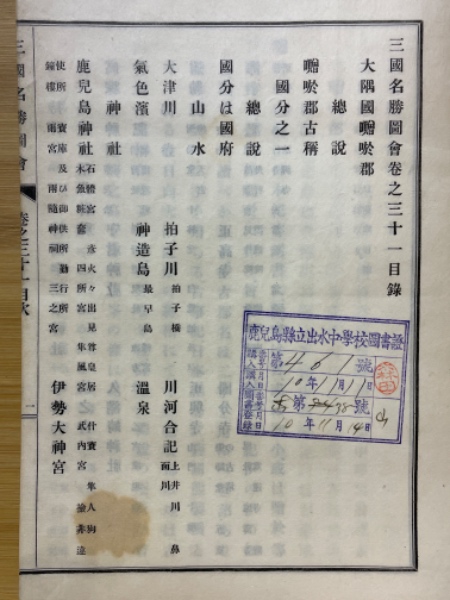 三國名勝圖會卷之三十一目錄
大隅國囎唹郡
總說
囎唹郡古稱
國分之一
總說
國分は國府
山水
大津川 拍子川 拍子橋 川河合記 上井川 鼻面川
氣色濱 神造島 最早島 溫泉
神社
鹿兒島神社 石體宮 彦火々出見尊皇居 什寶 隼人狗
四所宮 隼風宮 武內宮
使所 寶庫及び御供所 勤行所
鐘樓 雨宮 雨隨神祠 三之宮 伊勢大神宮
三國名勝圖會 卷之三十一目次 一
鹿兒島縣立出水中學校圖書證
第 461 號
10年11月11日
第 98 號
10年11月14日